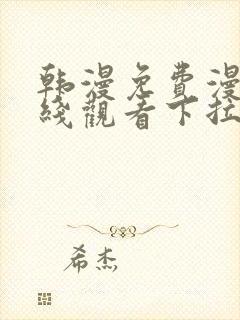 韩漫免費漫
綫觀看下拉
希杰